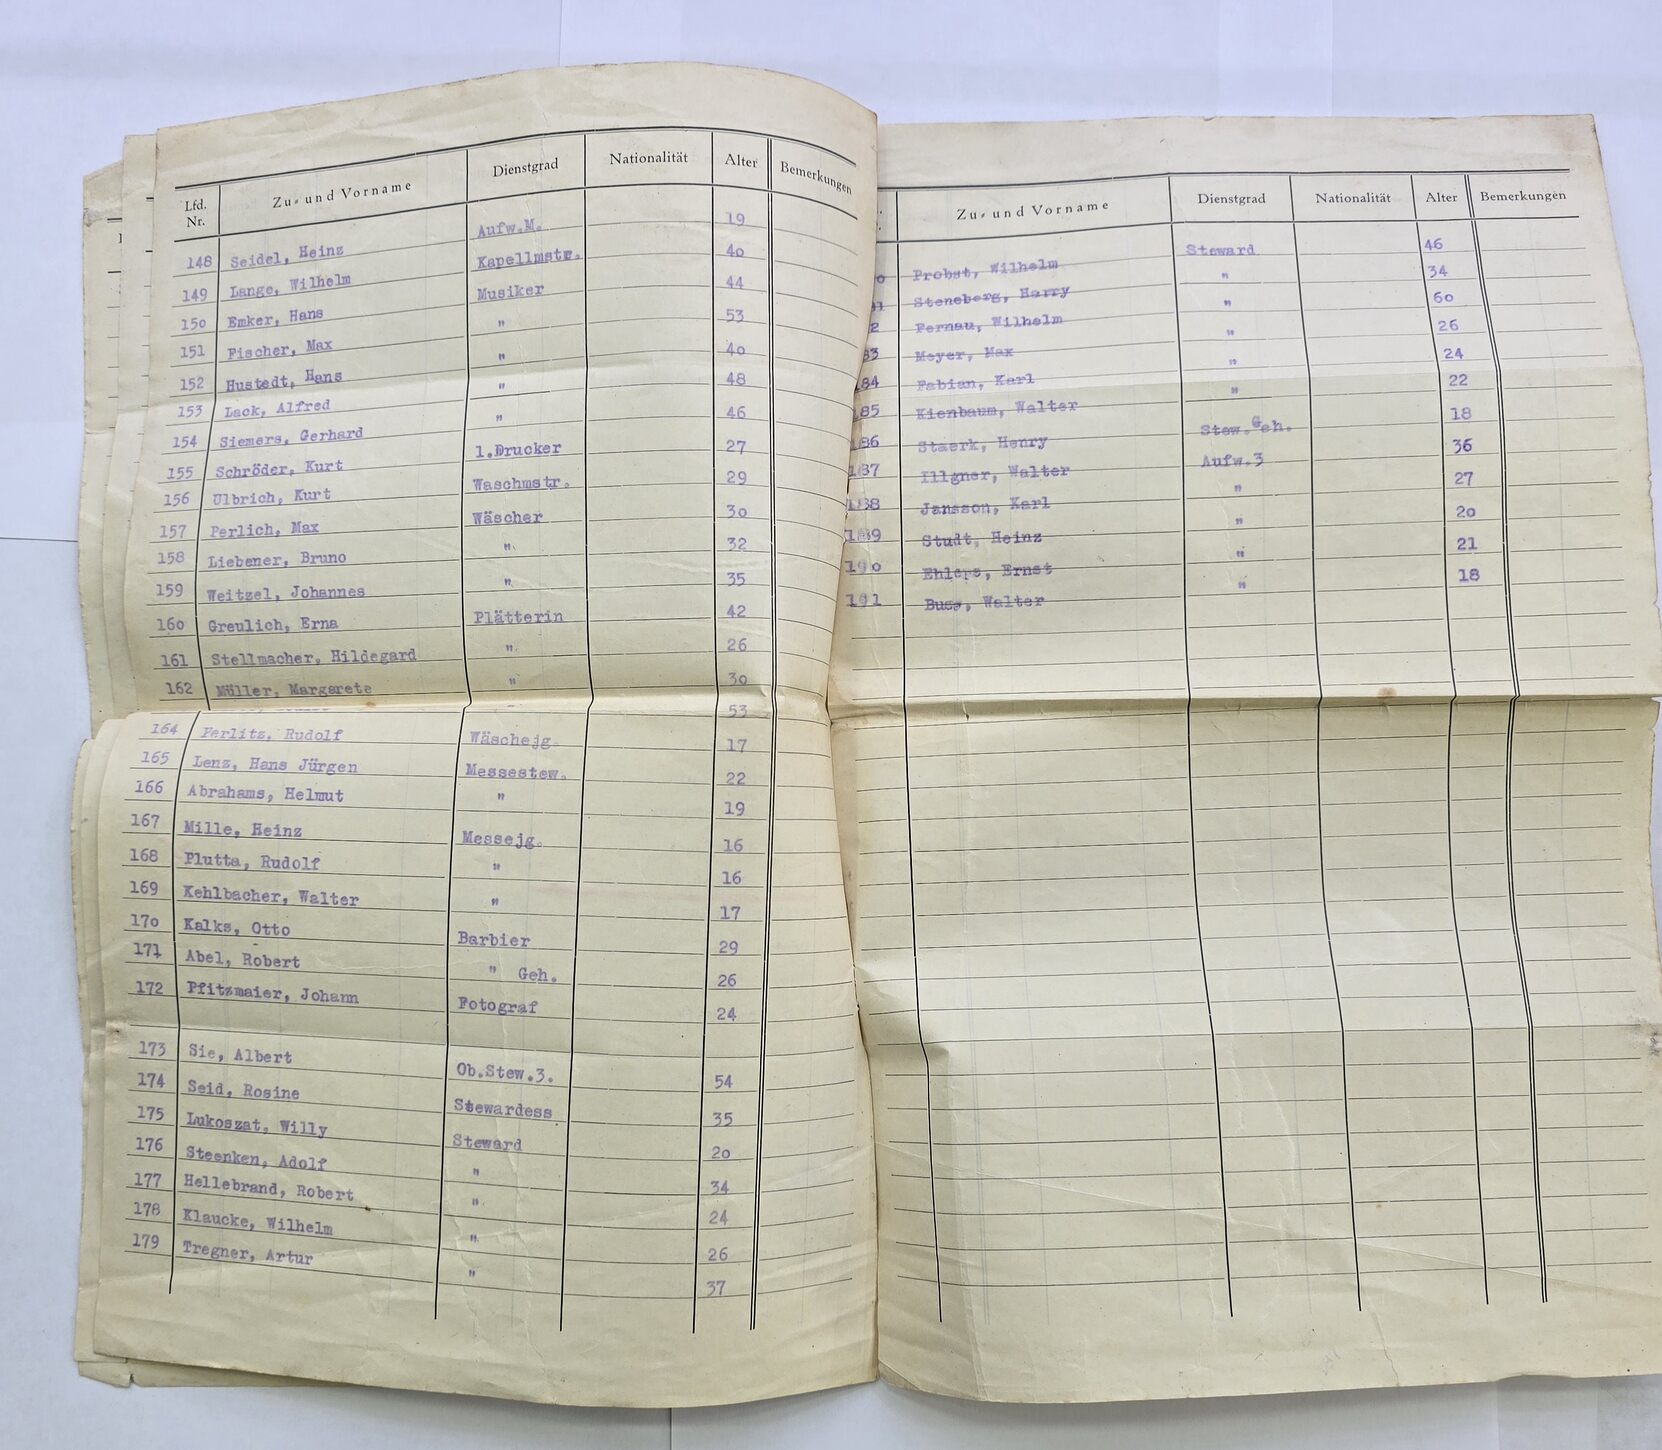 Lfd. Nr. Zu- und Vorname Dienstgrad Nationalität Alter Bemerkungen
148 Seidel, Heinz Aufw.M. 19
149 Lange, Wilhelm Kapellmstr. 40
150 Emker, Hans Musiker 44
151 Fischer, Max " 53
152 Hustedt, Hans " 40
153 Lack, Alfred " 48
154 Siemers, Gerhard " 46
155 Schröder, Kurt 1.Drucker 27
156 Ulbrich, Kurt Waschmstr. 29
157 Perlich, Max Wäscher 30
158 Liebener, Bruno " 32
159 Weitzel, Johannes " 35
160 Greulich, Erna Plätterin 42
161 Stellmacher, Hildegard " 26
162 Müller, Margarete " 30
53
164 Ferlitz, Rudolf Wäschejg. 17
165 Lenz, Hans Jürgen Messestew. 22
166 Abrahams, Helmut " 19
167 Mille, Heinz Messejg. 16
168 Plutta, Rudolf " 16
169 Kehlbacher, Walter " 17
170 Kalks, Otto Barbier 29
171 Abel, Robert " Geh. 26
172 Pfitzmaier, Johann Fotograf 24
173 Sie, Albert Ob.Stew.3. 54
174 Seid, Rosine Stewardess 35
175 Lukoszat, Willy Steward 20
176 Steenken, Adolf " 34
177 Hellebrand, Robert " 24
178 Klaucke, Wilhelm " 26
179 Tregner, Artur " 37
Zu- und Vorname Dienstgrad Nationalität Alter Bemerkungen
0 Probst, Wilhelm Steward 46
Steneberg, Harry " 34
2 Pernau, Wilhelm " 60
83 Meyer, Max " 26
84 Fabian, Karl " 24
185 Kienbaum, Walter " 22
186 Staerk, Henry Stew.Geh. 18
187 Illgner, Walter Aufw.3 36
188 Jansson, Karl " 27
189 Studt, Heinz " 20
190 Ehlers, Ernst " 21
191 Buss, Walter " 18